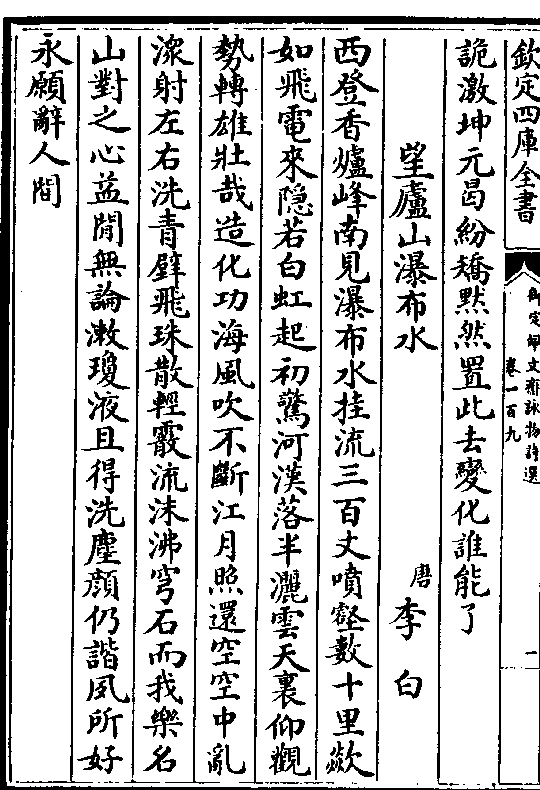 欽定四庫全書
御定佩文齋詠物詩選
卷一百九
一
詭激坤元曷紛矯默然置此去變化誰能了
望廬山瀑布水
唐李白
西登香爐峰南見瀑布水挂流三百丈噴壑數十里歘
如飛電來隱若白虹起初驚河漢落半灑雲天裏仰觀
勢轉雄壯哉造化功海風吹不斷江月照還空空中亂
潈射左右洗青壁飛珠散輕霞流沫沸穹石而我樂名
山對之心益閒無論漱瓊液且得洗塵顏仍諧夙所好
永願辭人間